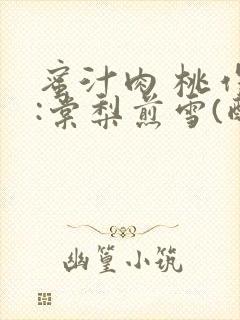 蜜汁肉桃作
:棠梨煎雪(酥
幽篁小筑